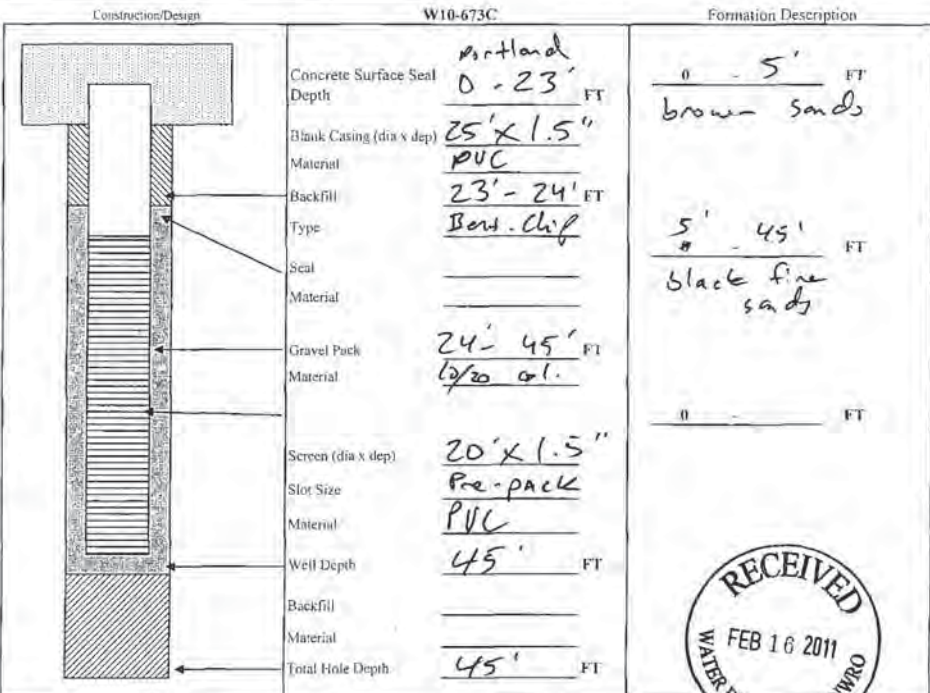 Construction/Design
W10-673C
Formation Description
Portland
Concrete Surface Seal Depth 0 - 23' FT
Blank Casing (dia x dep) 25' x 1.5"
Material PVC
Backfill 23' - 24' FT
Type Bent. Chip
Seal
Material
Gravel Pack 24' - 45' FT
Material 10/20 col.
Screen (dia x dep) 20' x 1.5"
Slot Size Pre-pack
Material PVC
Well Depth 45' FT
Backfill
Material
Total Hole Depth 45' FT
0 - 5' FT
brown sands
5' - 45' FT
black fine
sands
0 - FT
RECEIVED
FEB 16 2011
WATER